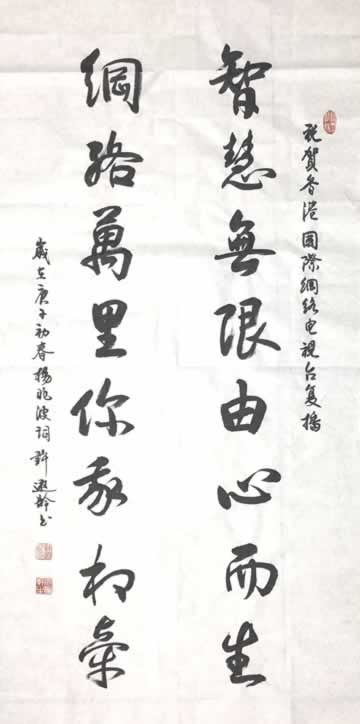 祝賀香港國際網絡电視台复播
智慧無限由心而生
網路萬里你我相牽
歲在庚子初春楊兆波詞許遊齡书